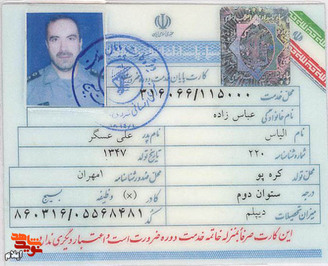 کارت پایان خدمت دوره ضرورت
۳۹۶۰۶۶/۱۱۵۰۰۰
محل خدمت
نام خانوادگی عباس زاده
نام الیاس نام پدر علی عسگر
شماره شناسنامه ۲۲۰ تاریخ تولد ۱۳۴۷
محل تولد کره پو محل صدور شناسنامه امهران
درجه ستوان دوم (x) وظیفه بسیج
میزان تحصیلات دیپلم کد ۸۶۰۳۱۶/۰۵۵۶۸۴۸۱
این کارت صرفا بمنزله خاتمه خدمت دوره ضرورت است و اعتبار دیگری ندارد